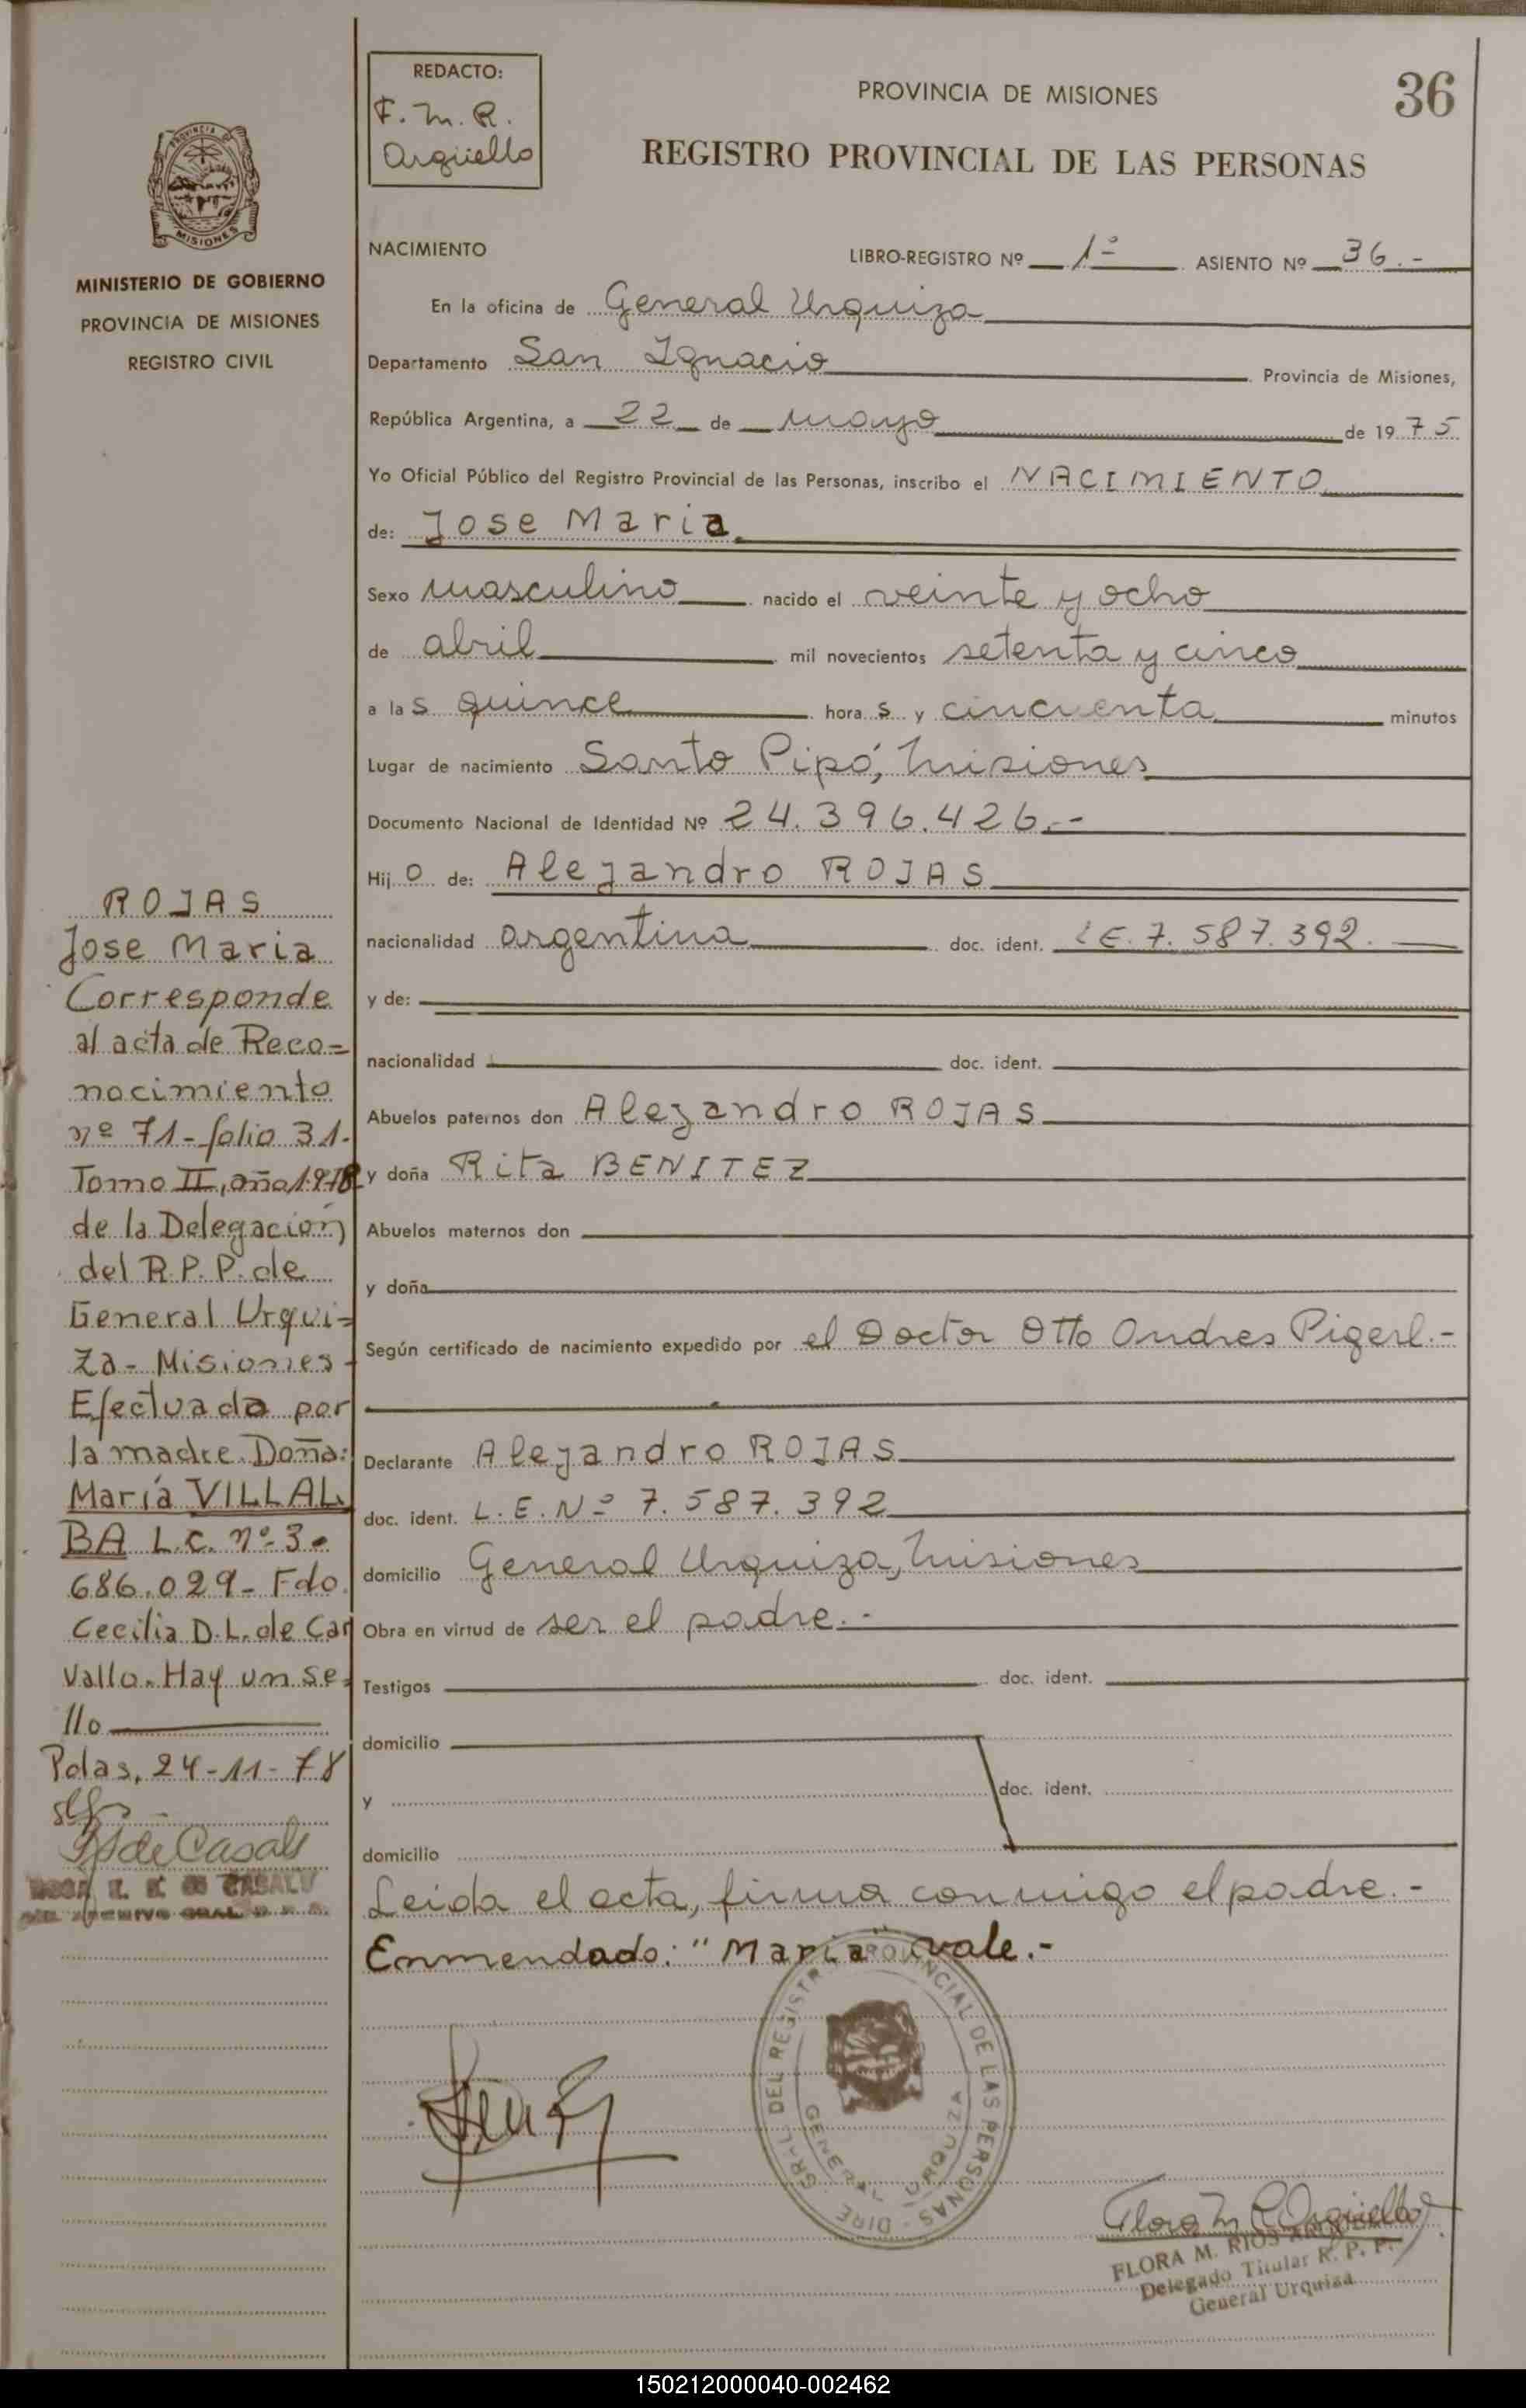 REDACTO:
F. M. R.
Argüello
PROVINCIA DE MISIONES
36
REGISTRO PROVINCIAL DE LAS PERSONAS
MISIONES
MINISTERIO DE GOBIERNO
PROVINCIA DE MISIONES
REGISTRO CIVIL
NACIMIENTO
LIBRO-REGISTRO Nº 1º ASIENTO Nº 36.-
En la oficina de General Urquiza
Departamento San Ignacio Provincia de Misiones,
República Argentina, a 22 de mayo de 1975
Yo Oficial Público del Registro Provincial de las Personas, inscribo el NACIMIENTO
de: Jose Maria
Sexo masculino nacido el veinte y ocho
de abril mil novecientos setenta y cinco
a las quince horas y cincuenta minutos
Lugar de nacimiento Santo Pipó, Misiones
Documento Nacional de Identidad Nº 24.396.426.-
Hijo de: Alejandro ROJAS
nacionalidad argentina doc. ident. LE. 7.587.392.
y de:
nacionalidad doc. ident.
Abuelos paternos don Alejandro ROJAS
y doña Rita BENITEZ
Abuelos maternos don
y doña
Según certificado de nacimiento expedido por el Doctor Otto Andres Pigerl.-
Declarante Alejandro ROJAS
doc. ident. L.E.Nº 7.587.392
domicilio General Urquiza, Misiones
Obra en virtud de ser el padre.-
Testigos doc. ident.
domicilio
y doc. ident.
domicilio
Leida el acta, firma conmigo el padre.-
Enmendado: "Maria" vale.-
ROJAS
Jose Maria
Corresponde
al acta de Reco=
nocimiento
nº 71-folio 31.
Tomo II, año 1978
de la Delegación
del R.P.P. de
General Urqui=
za- Misiones-
Efectuado por
la madre. Doña:
María VILLAL
BA L.C. nº 3.
686.029- Fdo.
Cecilia D.L. de Car
vallo. Hay un se=
llo
Pdas, 24-11-78
de Casals
DIRE GRAL. DEL REGISTRO PROVINCIAL DE LAS PERSONAS
GENERAL URQUIZA
Flora M R Argüello
FLORA M. RIOS
Delegado Titular R. P. P.
General Urquiza
150212000040-002462